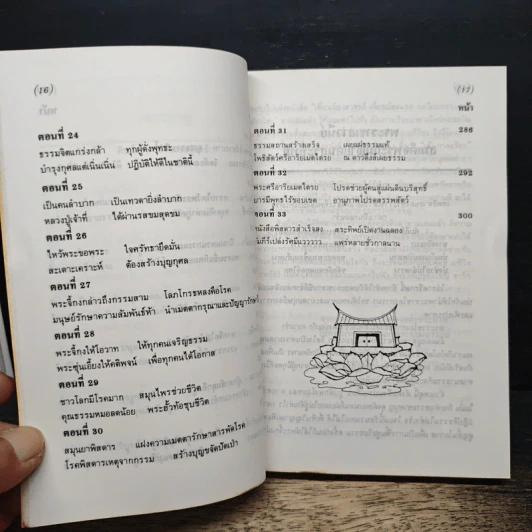 (16)
ตอนที่ 24
ธรรมจิตแกร่งกล้า ทุกผู้ดั่งพุทธะ
บำรุงกุศลแต่เนิ่นเนิ่น ปฏิบัติให้ดีในชาตินี้
ตอนที่ 25
เป็นคนลำบาก เป็นเทวดายิ่งลำบาก
หลวงปู่เจ้าที่ ได้ผ่านรสขมสุดขม
ตอนที่ 26
ไหว้พระขอพระ ใจศรัทธายึดมั่น
สะเดาะเคราะห์ ต้องสร้างบุญกุศล
ตอนที่ 27
พระจี้กงกล่าวถึงกรรมสาม โลภโกรธหลงคือโรค
มนุษย์รักษาความสัมพันธ์ห้า นำเมตตากรุณาและปัญญารักษา
ตอนที่ 28
พระจี้กงให้โอวาท ให้ทุกคนเจริญธรรม
พระซุ่นเอี้ยงให้คติพจน์ เพื่อทุกคนได้โอกาส
ตอนที่ 29
ชาวโลกมีโรคมาก สมุนไพรช่วยชีวิต
คุณธรรมหมอลดน้อย พระฮั่วท้อชุบชีวิต
ตอนที่ 30
สมุนยาพิสดาร แฝงความเมตตารักษาสารพัดโรค
โรคพิสดารเหตุจากกรรม สร้างบุญขจัดปัดเป่า
(17)
หน้า
ตอนที่ 31 286
ธรรมสถานสร้างเสร็จ เผยแผ่ธรรมแท้
โพธิสัตว์ศรีอาริยเมตไตรย ณ ดาวดึงส์เผยธรรม
ตอนที่ 32 292
พระศรีอาริยเมตไตรย โปรดช่วยผู้คนสู่แผ่นดินบริสุทธิ์
บารมีพุทธไร้ขอบเขต อานุภาพโปรดสรรพสัตว์
ตอนที่ 33 300
หนังสือพิสดารสำเร็จลง สระทิพย์เปิดงานฉลอง
แพร่หลายชั่วกาลนาน